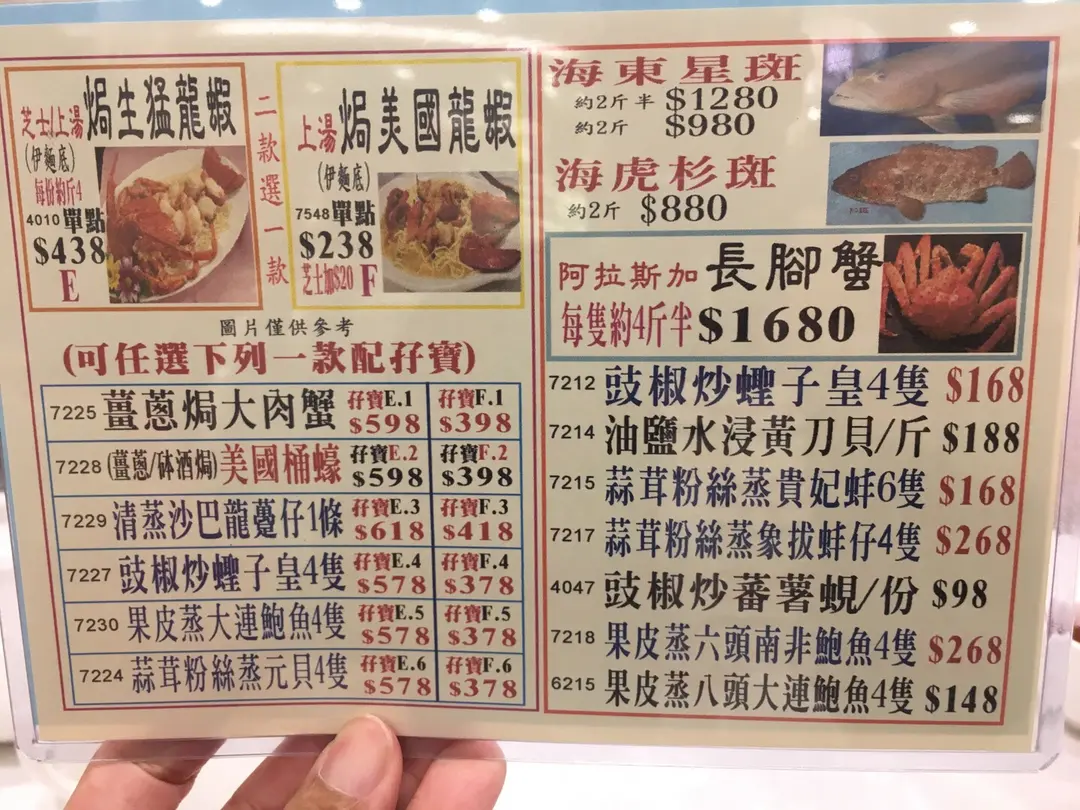 芝士/上湯 焗生猛龍蝦
(伊麵底)
每份約斤4
4010 單點
$438
E
二款選一款
上湯 焗美國龍蝦
(伊麵底)
7548 單點
$238
芝士加$20 F
圖片僅供參考
(可任選下列一款配孖寶)
7225 薑蔥焗大肉蟹 孖寶E.1 $598 孖寶F.1 $398
7228 (薑蔥/砵酒焗)美國桶蠔 孖寶E.2 $598 孖寶F.2 $398
7229 清蒸沙巴龍躉仔1條 孖寶E.3 $618 孖寶F.3 $418
7227 豉椒炒蟶子皇4隻 孖寶E.4 $578 孖寶F.4 $378
7230 果皮蒸大連鮑魚4隻 孖寶E.5 $578 孖寶F.5 $378
7224 蒜茸粉絲蒸元貝4隻 孖寶E.6 $578 孖寶F.6 $378
海東星斑
約2斤半 $1280
約2斤 $980
海虎杉斑
約2斤 $880
阿拉斯加長腳蟹
每隻約4斤半 $1680
7212 豉椒炒蟶子皇4隻 $168
7214 油鹽水浸黃刀貝/斤 $188
7215 蒜茸粉絲蒸貴妃蚌6隻 $168
7217 蒜茸粉絲蒸象拔蚌仔4隻 $268
4047 豉椒炒蕃薯蜆/份 $98
7218 果皮蒸六頭南非鮑魚4隻 $268
6215 果皮蒸八頭大連鮑魚4隻 $148